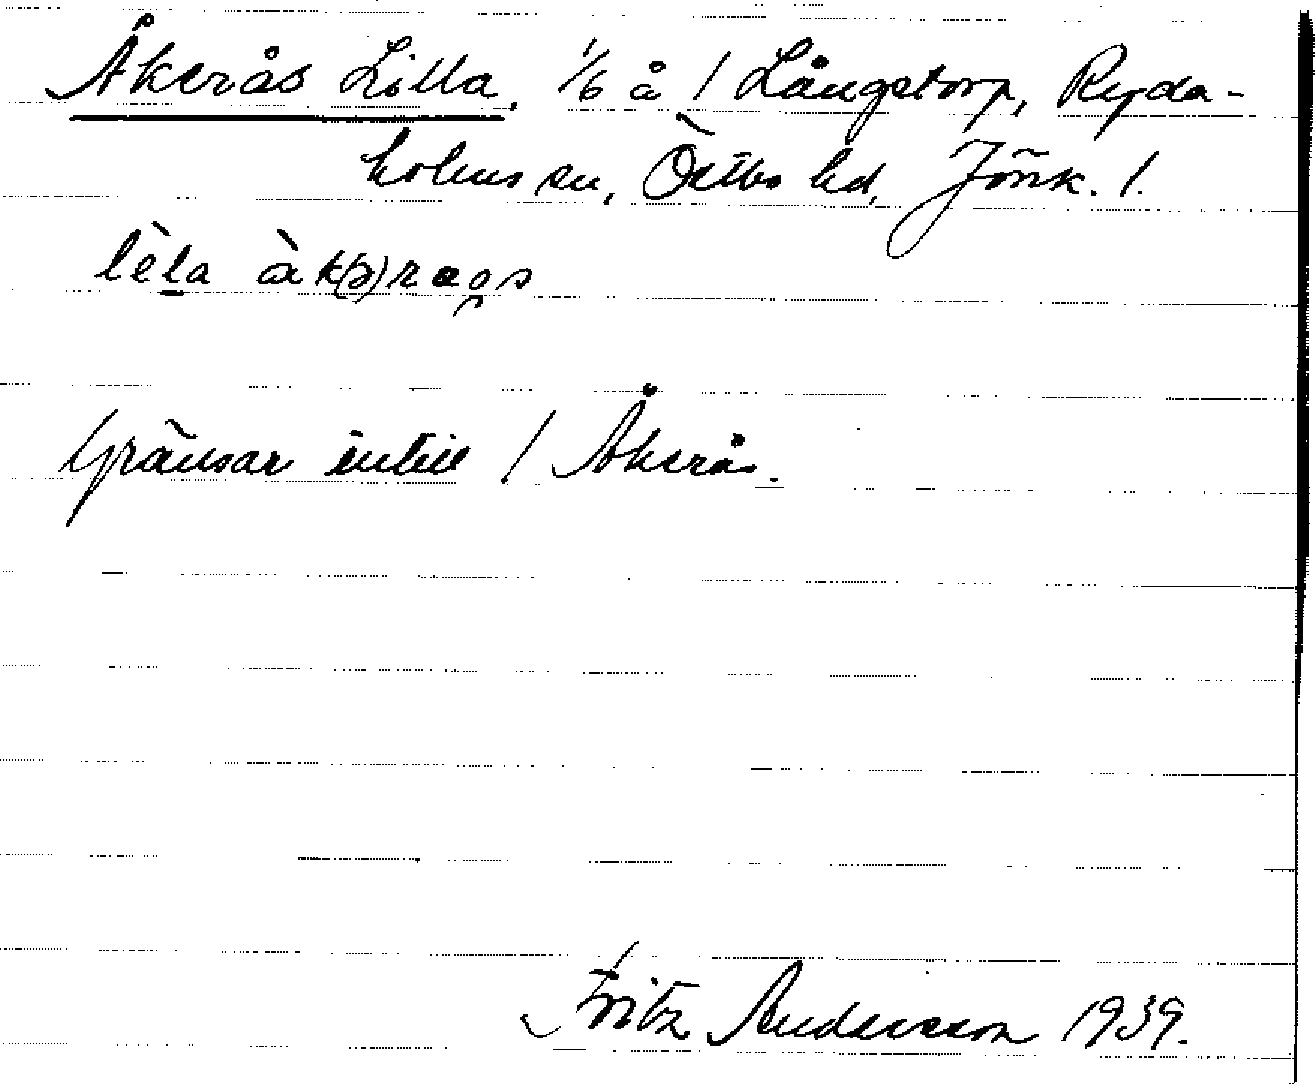 Åkerås Lilla, 1/6 å 1 Långstorp, Ryda-
holms sn, Östbo hd, Jönk. l.
lèla àk(ə)raos
Gränsar intill 1 Åkerås.
Fritz Andersson 1939.